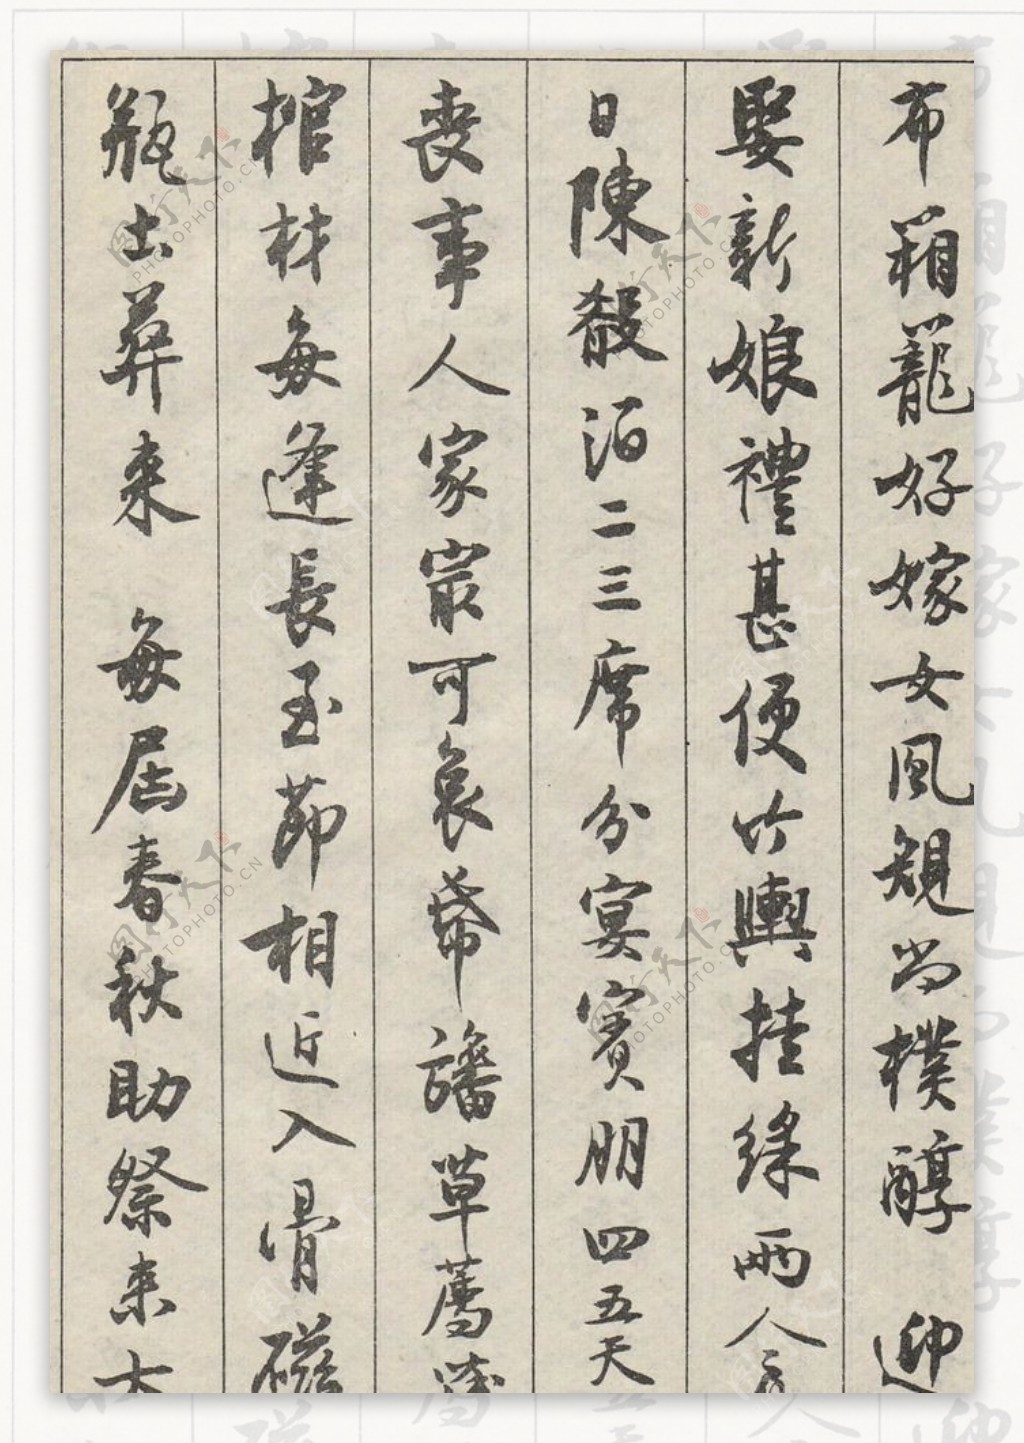 布箱籠好嫁女風規尚樸醇 迎
娶新娘禮甚便竹輿挂綵兩人
日陳殽酒二三席分宴賓朋四五天
喪事人家㝡可哀帋旛草薦
棺材每逢長至節相近入骨磁
瓶土葬來 每屆春秋助祭來大